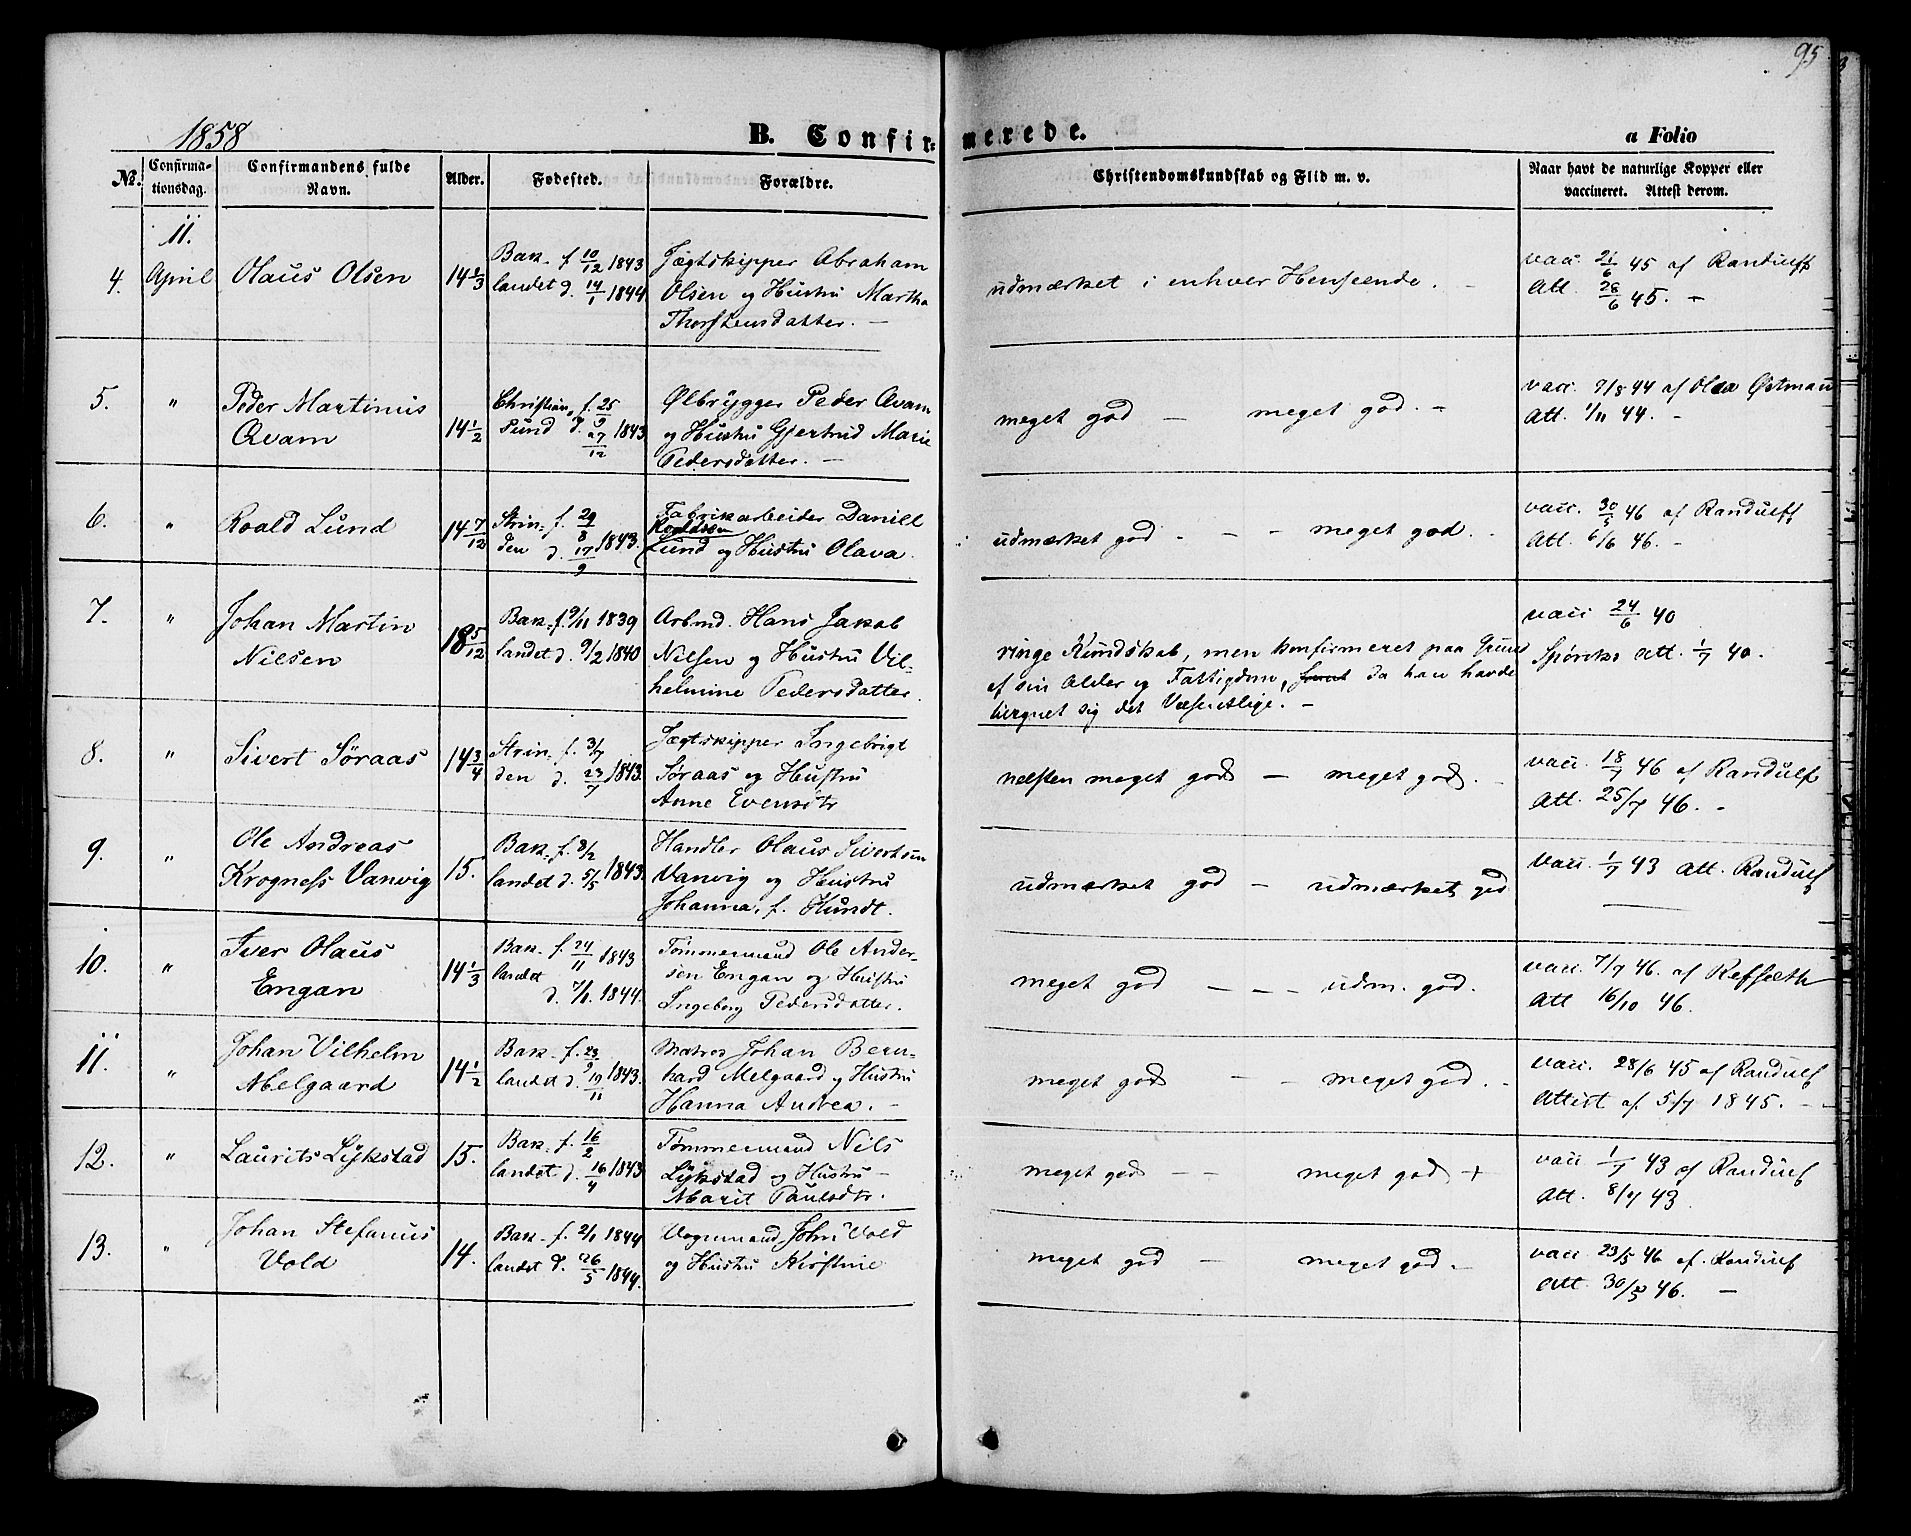 95
1858
B. Confirmerede.
a Folio
No.
Confirma-
tionsdag.
Confirmandens fulde
Navn.
Alder.
Fødested.
Forældre.
Christendomskundskab og Flid m. v.
Naar havt de naturlige Kopper eller
vaccineret. Attest derom.
11.
4. April Olaus Olsen 14 1/3
Bak- f 10/12 1843
landet d. 14/1 1844
Jægtskipper Abraham
Olsen og Hustru Martha
Thorstensdatter. —
udmærket i enhver Henseende. -
vacc. 21/6 45 af Randulff
Att. 28/6 45. -
5. " Peder Martinus
Qvam 14 1/2
Christian- f. 25/9
sund d. 27/12 1843
Ølbrygger Peder Qvam
og Hustru Gjertrud Marie
Pedersdatter. —
meget god — meget god. -
vacc. 7/8 44 af Olea Østman
Att. 1/11 44. -
6. " Roald Lund 14 7/12
Strin- f. 29/8
den d. 17/9 1843.
Fabrikarbeider Daniel
Roaldsen
Lund og Hustru Olava.
udmærket god - - - meget god.
vacc. 30/5 46 af Randulff
Att. 6/6 46. -
7. " Johan Martin
Nilsen 18 5/12
Bak- f. 9/11 1839
landet d. 9/2 1840
Arbmd. Hans Jakob
Nilsen og Hustru Vil-
helmine Pedersdatter.
ringe Kundskab, men konfirmeret paa Grund
af sin Alder og Fattigdom, da han havde
tiegnet sig det Væsentlige. -
vacc 24/6 40
Spørcks Att. 1/7 40.
8. " Sivert Søraas 14 3/4
Strin- f. 3/7
den d. 23/7 1843.
Jægtskipper Ingebrigt
Søraas og Hustru
Anne Evensdtr
næsten meget god — meget god.
vacc. 18/7 46 af Randulf
Att. 25/7 46. -
9. " Ole Andreas
Krogness Vanvig 15.
Bak- f. 8/2
landet d. 5/5 1843.
Handler Olaus Sivertsen
Vanvig og Hustru
Johanna, f. Hundt.
udmærket god — udmærket god
vacc. 1/7 43 Att. Randulf
10. " Iver Olaus
Engan 14 1/3
Bak- f. 24/11 1843
landet
d. 7/1 1844.
Tømmermand Ole Ander-
sen Engan og Hustru
Ingeborg Pedersdatter.
meget god - - - udm. god.
vacc. 7/7 46. af Refsæth
Att 16/10 46.
11. " Johan Vilhelm
Melgaard 14 1/2
Bak- f. 23/9
landet d. 19/11 1843.
Matros Johan Bern-
hard Melgaard og Hustru
Hanna Andrea. -
meget god - - meget god. -
vacc. 28/6 45 af Randulf
Attest af 5/7 1845. -
12. " Laurits Lykstad 15.
Bak- f. 16/2
landet d. 16/4 1843
Tømmermand Nils
Lykstad og Hustru
Marit Paulsdtr.
meget god - - meget god +
vacc 1/7 43 af Randulf
Att. 8/7 43.
13. " Johan Stefanus
Vold 14.
Bak- f. 2/1 1844
landet d. 26/5 1844.
Vognmand John Vold
og Hustru Kirstine
meget god — meget god. -
vacc 23/5 46 af. Randulf
Att. 30/5 46. —